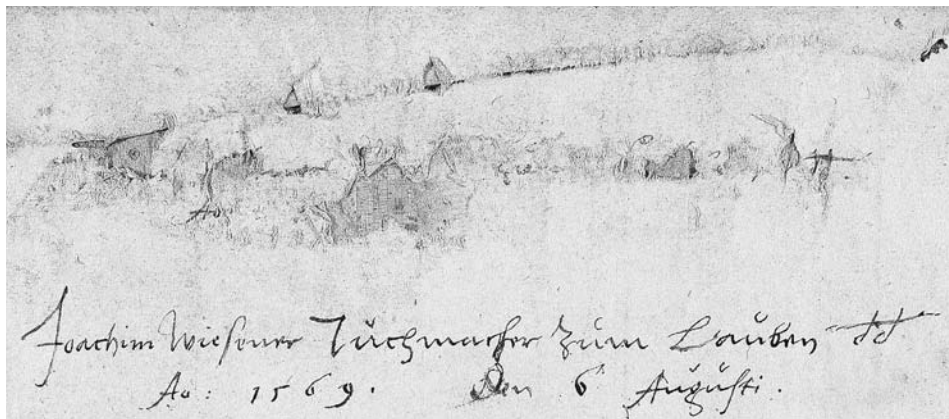 Ao
Joachim Wiesener Tuchmacher Zum Lauben dd
Ao: 1569. Den 6 Augusti.